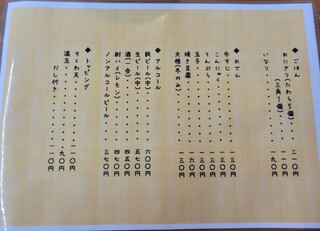 ◆ごはん
おにぎり(たわら5個)・・二一〇円
(三角1個)・・
いなり・・・・・・・・一九〇円
◆おでん
牛すじ・・・・・・・・一三〇円
こんにゃく・・・・・・一三〇円
てんぷら・・・・・・・一三〇円
玉子・・・・・・・・・一三〇円
焼き豆腐・・・・・・・一六〇円
大根(冬のみ)・・・・・一三〇円
◆アルコール
瓶ビール(中)・・・・六〇〇円
生ビール(中)・・・・五七〇円
酒(一合)・・・・・・四五〇円
酎ハイ(レモン)・・・四七〇円
ノンアルコールビール・・三七〇円
◆トッピング
ちくわ天・・・・・・・一一〇円
温玉・・・・・・・・・・九〇円
だし付き・・・・・・・一一〇円